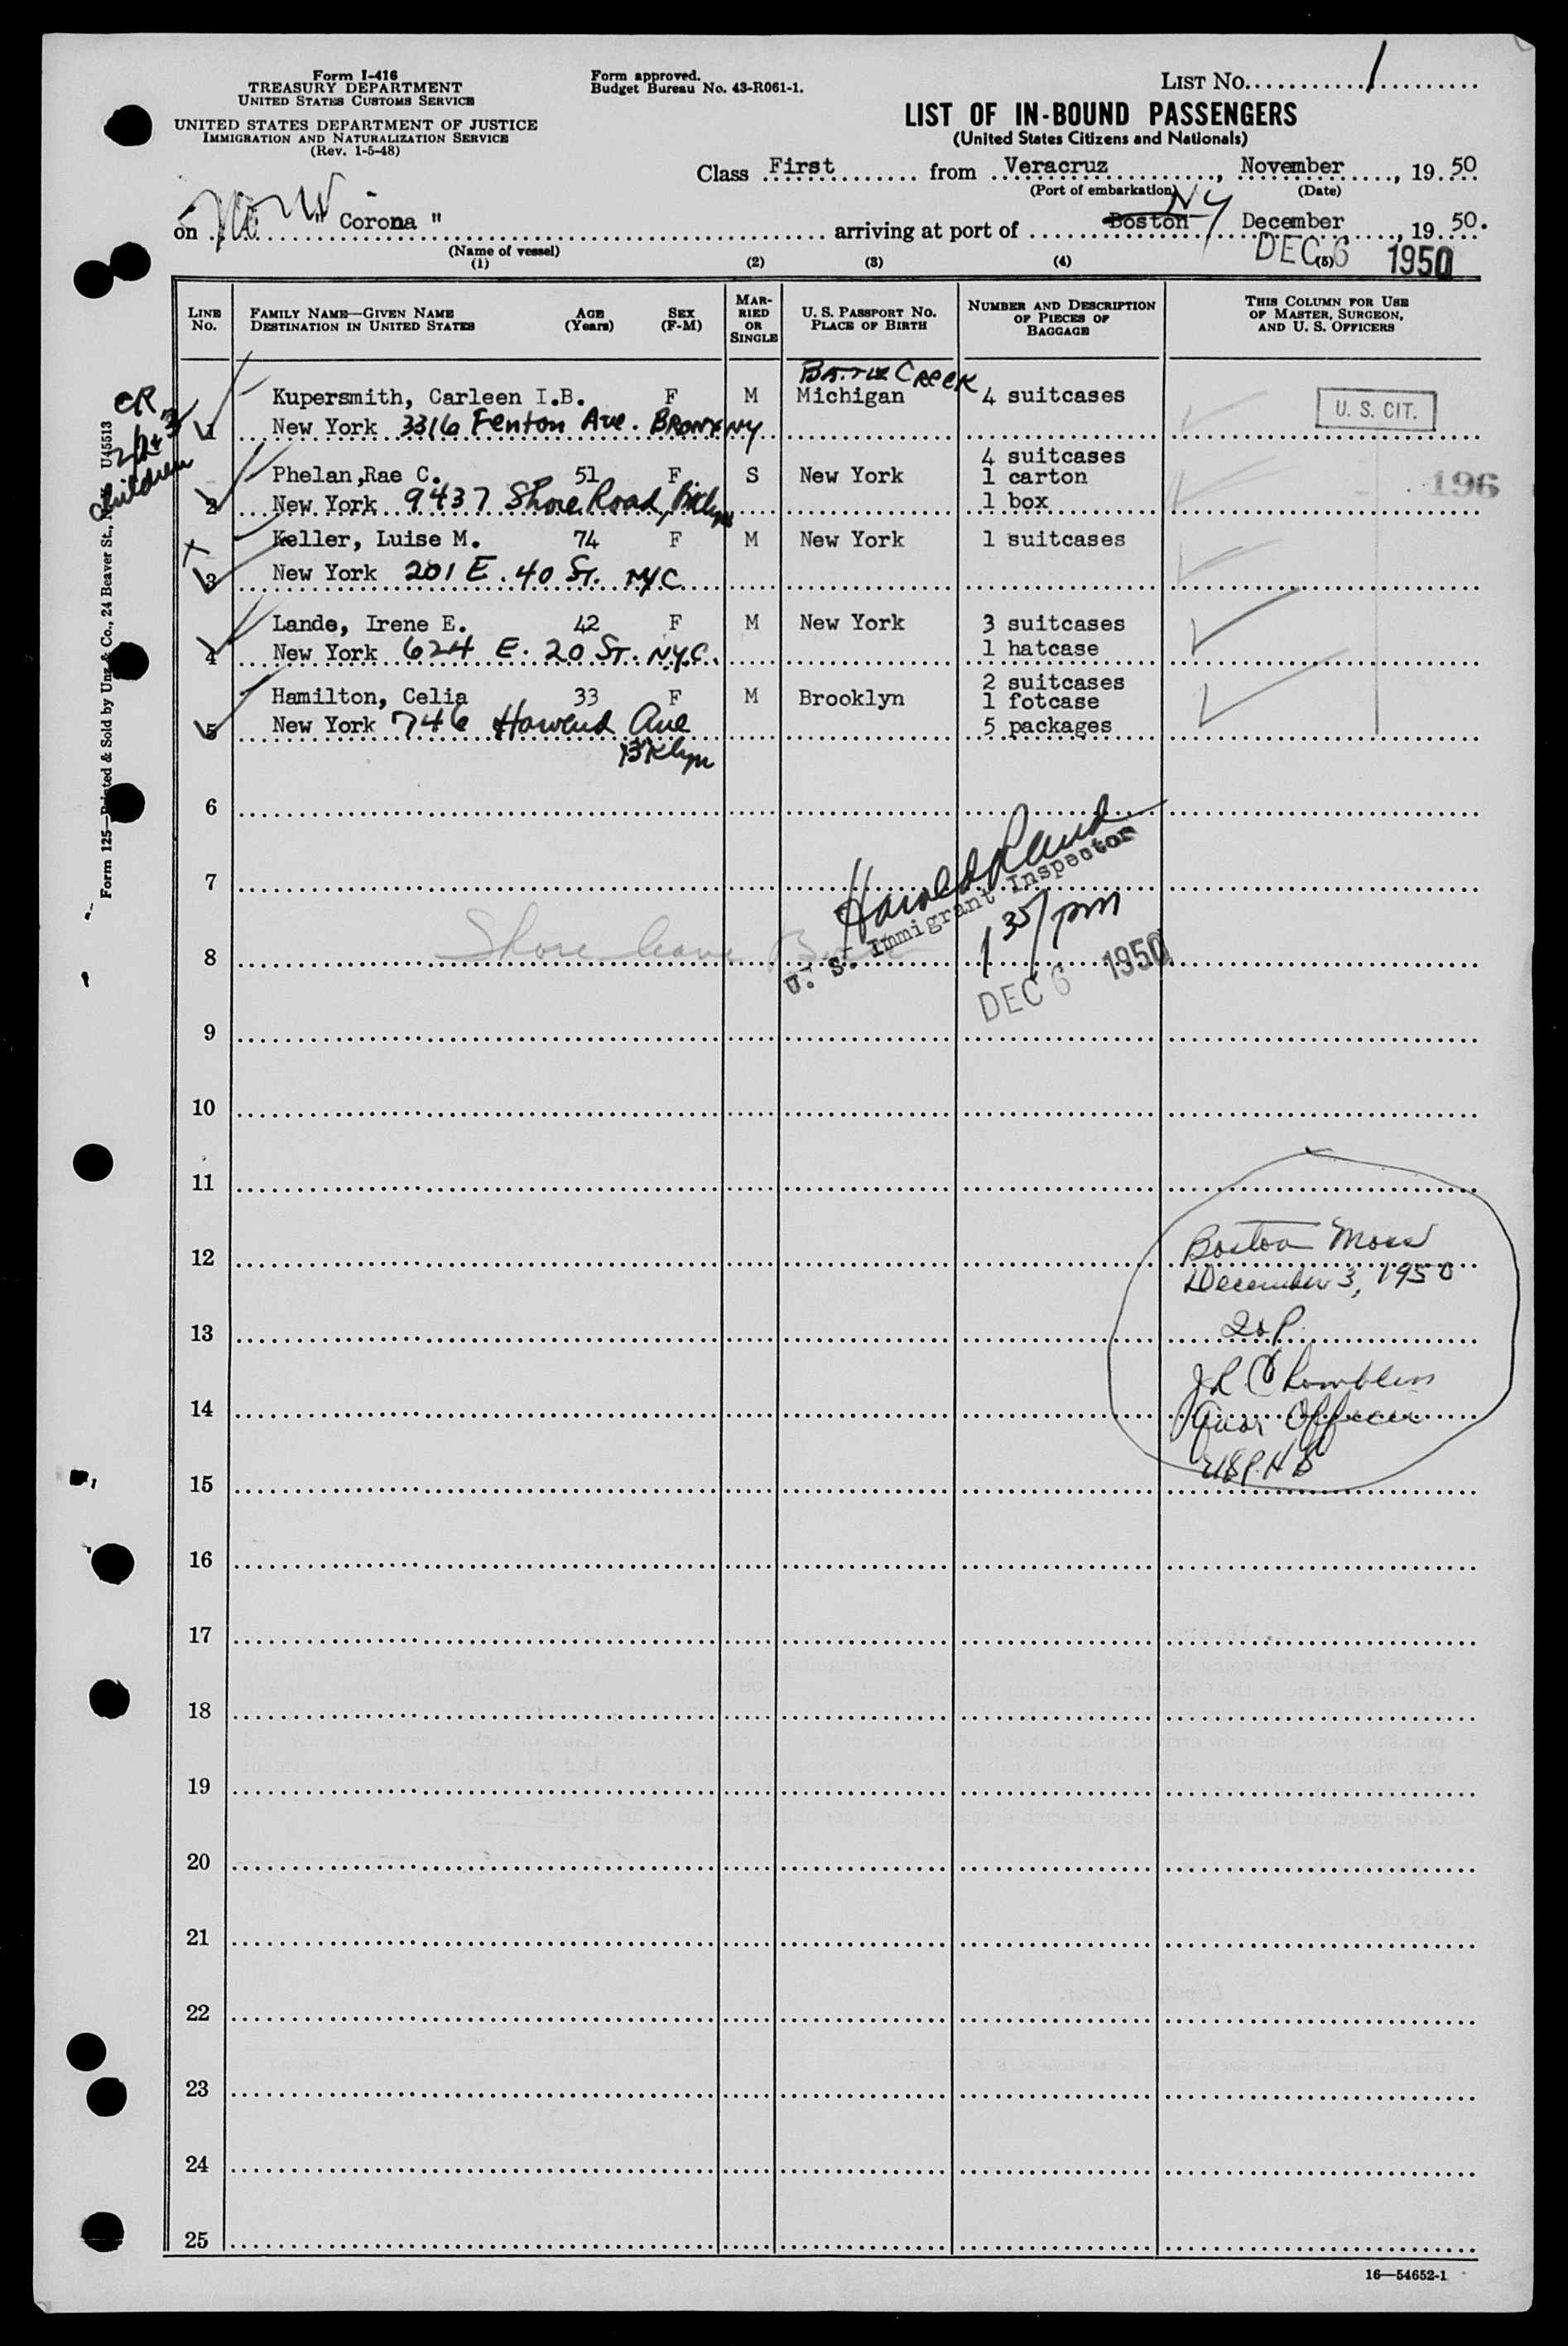 Form I-416
TREASURY DEPARTMENT
UNITED STATES CUSTOMS SERVICE
UNITED STATES DEPARTMENT OF JUSTICE
IMMIGRATION AND NATURALIZATION SERVICE
(Rev. 1-5-48)
Form approved.
Budget Bureau No. 43-R061-1.
LIST No. 1
LIST OF IN-BOUND PASSENGERS
(United States Citizens and Nationals)
Class First from Veracruz, November, 19 50
(Port of embarkation) (Date)
on " Corona " arriving at port of Boston NY December, 19 50.
(Name of vessel)
DEC 6 1950
(1) (2) (3) (4) (5)
LINE No. FAMILY NAME—GIVEN NAME DESTINATION IN UNITED STATES AGE (Years) SEX (F-M) MARRIED OR SINGLE U. S. PASSPORT No. PLACE OF BIRTH NUMBER AND DESCRIPTION OF PIECES OF BAGGAGE THIS COLUMN FOR USE OF MASTER, SURGEON, AND U. S. OFFICERS
Battle Creek
Kupersmith, Carleen I.B. F M Michigan 4 suitcases U. S. CIT.
1 New York 3316 Fenton Ave. Bronx NY
4 suitcases
Phelan,Rae C. 51 F S New York 1 carton 196
2 New York 9437 Shore Road, Bklyn 1 box
Keller, Luise M. 74 F M New York 1 suitcases
3 New York 201 E. 40 St. NYC
Lande, Irene E. 42 F M New York 3 suitcases
4 New York 624 E. 20 St. N.Y.C. 1 hatcase
2 suitcases
Hamilton, Celia 33 F M Brooklyn 1 fotcase
5 New York 746 Howard Ave 5 packages
Bklyn
6
7
Harold
U. S. Immigrant Inspector
1 35/pm
DEC 6 1950
8 Shore leave
9
10
11
12 Boston Mass
December 3, 1950
13
14 Quar Officer
USPHS
15
16
17
18
19
20
21
22
23
24
25
16—54652-1
Form 125—Printed & Sold by Unz & Co., 24 Beaver St., N. Y. U45513
children